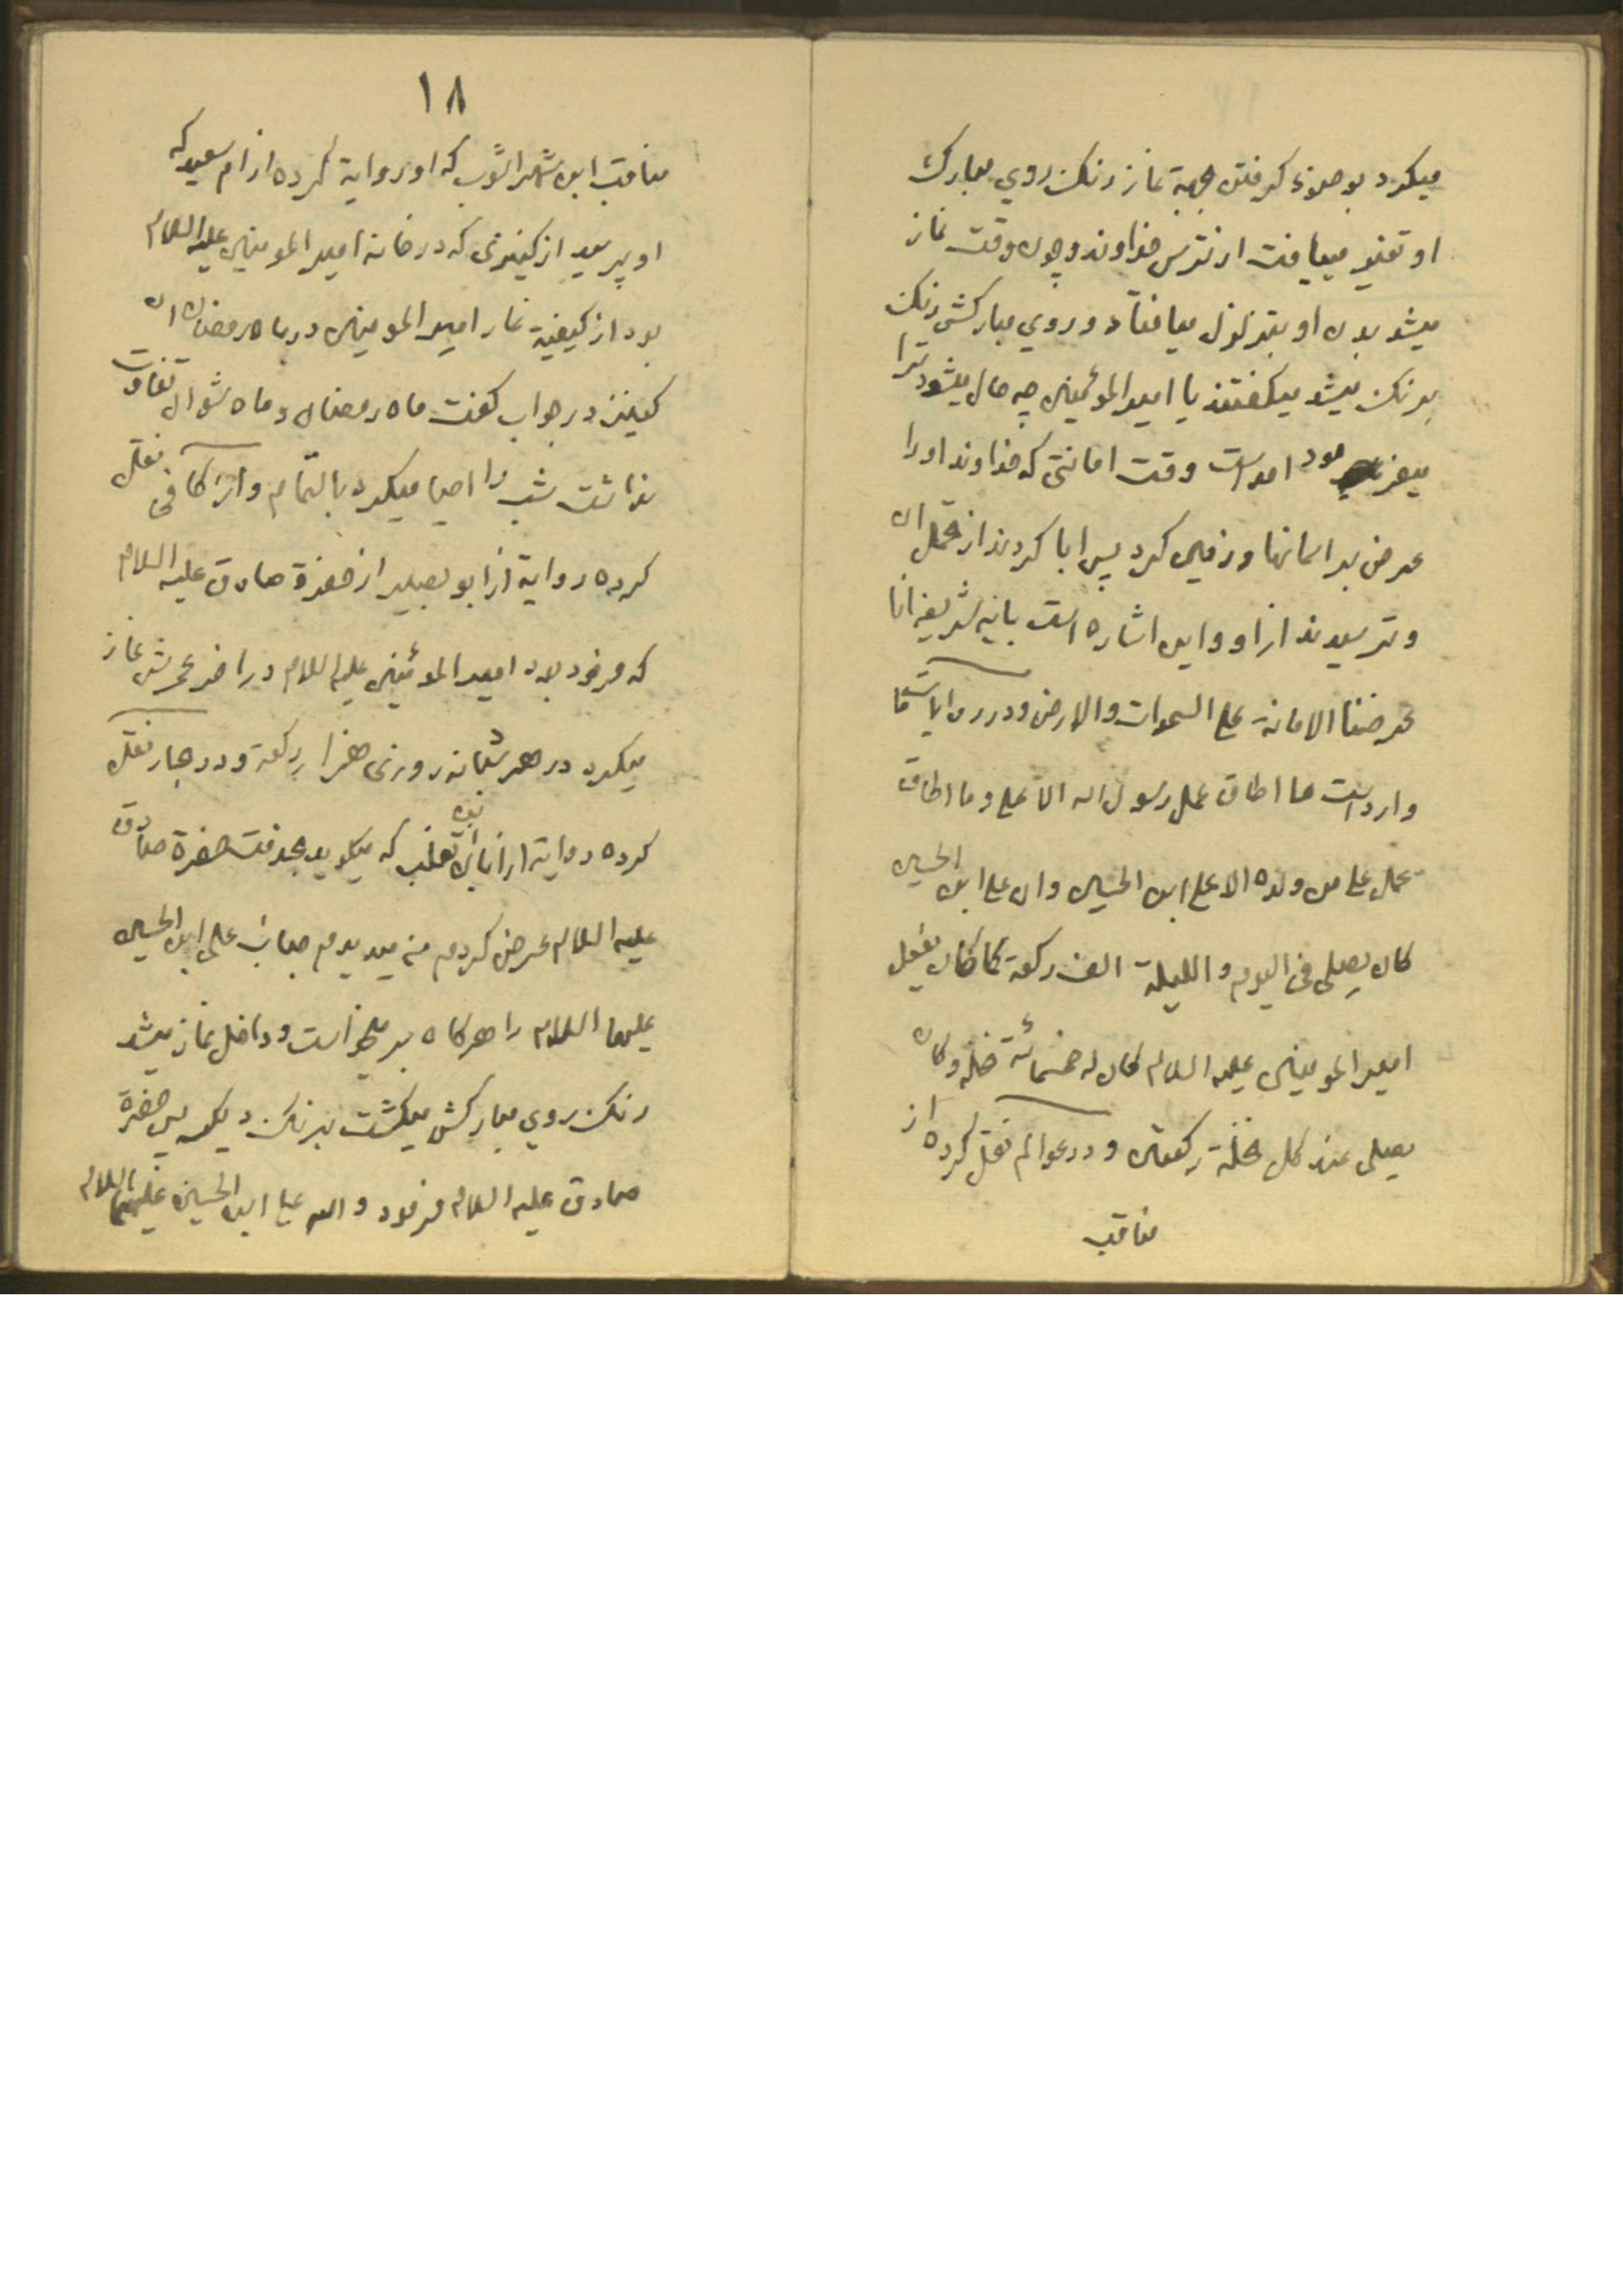 میکرد بوضوء کرفتن بجهة نماز رنک روی مبارک
او تغیر مییافت از ترس خداوند و چون وقت نماز
میشد بدن او بتزلزل میافتاد و روی مبارکش رنک
برنک میشد میکفتند یا امیر المؤمنین چه حال میشود ترا
میفرمود امد است وقت امانتی که خداوند او را
عرض بر اسمانها و زمین کرد پس ابا کردند از تحمل ان
و ترسیدند از او و این اشاره است بایه شریفه انا
عرضنا الامانة علی السموات والارض و در
وارد است ما اطاق عمل رسول الله الا علی و ما اطاق
عمل علی من ولده الا علی ابن الحسین وان علی ابن الحسین
کان یصلی فی الیوم و اللیلة الف رکعة کما کان یفعل
امیر المومنین علیه السلام کان له خمسمائة نخلة وکان
یصلی عند کل نخلة رکعتین و در عوالم نقل کرده از
مناقب
١٨
مناقب ابن شهر اشوب که او روایة کرده از ام سعید که
او پرسید از کنیزی که در خانه امیر المومنین علیه السلام
بود از کیفیة نماز امیر المومنین در ماه رمضان ان
کنیز در جواب کفت ماه رمضان و ماه شوال تفاوت
نداشت شب را احیا میکرد بالتمام و از کافی نقل
کرده روایة از ابو بصیر از حضرة صادق علیه السلام
که فرمود بود امیر المؤمنین علیه السلام در اخر عمرش نماز
میکرد در هر شبانه روزی هزار رکعة و در بحار نقل
کرده روایة از ابان بن تغلب که میکوید بخدمت حضرة صادق
علیه السلام عرض کردم من میدیدم جناب علی ابن الحسین
علیهما السلام را هر کاه بر میخواست و داخل نماز میشد
رنک روی مبارکش میکشت برنک دیکر پس حضرة
صادق علیه السلام فرمود والله علی ابن الحسین علیهما السلام